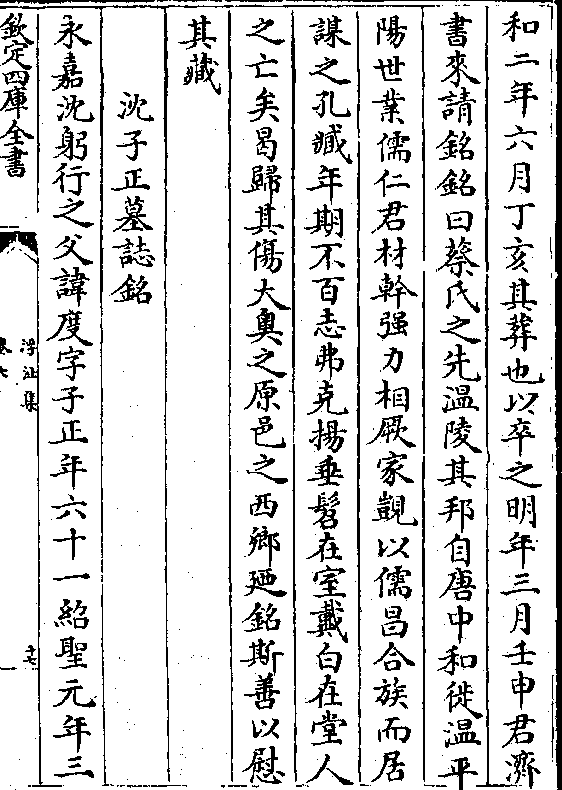 和二年六月丁亥其葬也以卒之明年三月壬申君濟
書來請銘銘曰蔡氏之先溫陵其邦自唐中和徙溫平
陽世業儒仁君材幹强力相厥家覬以儒昌合族而居
謀之孔臧年期不百志弗克揚垂髫在室戴白在堂人
之亡矣曷歸其傷大奥之原邑之西鄉廼銘斯善以慰
其藏
沈子正墓誌銘
永嘉沈躬行之父諱度字子正年六十一紹聖元年三
欽定四庫全書
浮沚集
卷七
十七